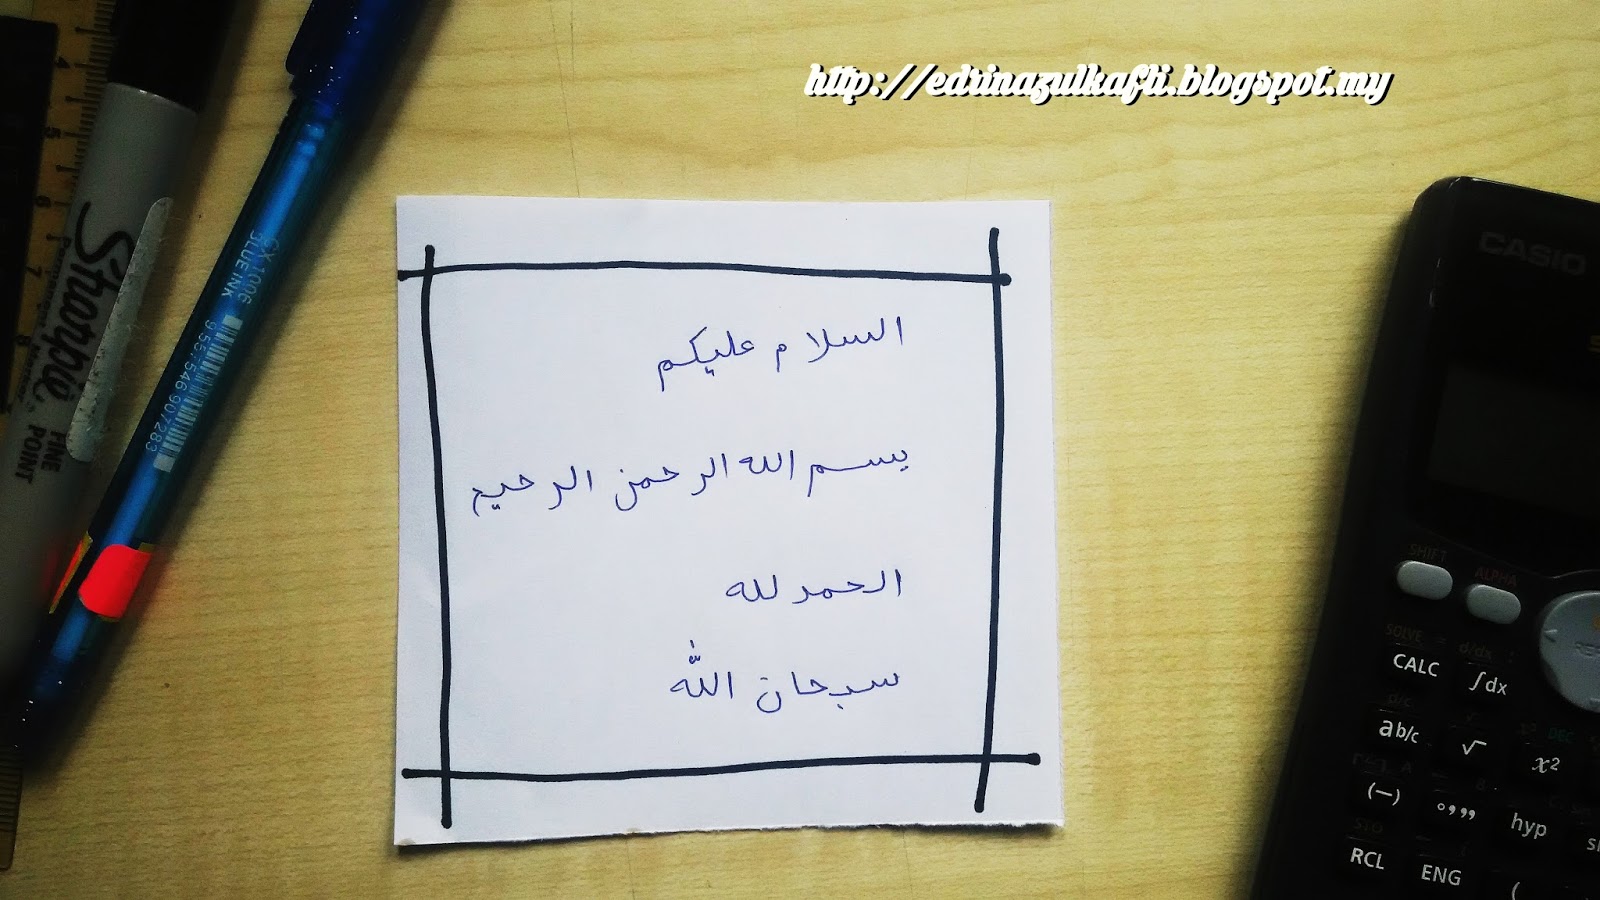 http://edrinazulkafli.blogspot.my
السلام عليكم
بسم الله الرحمن الرحيم
الحمد لله
سبحان اللّٰه
Sharpie
FINE
POINT
GX 1006
BLUE INK
9 557546 907283
4
5
6
7
8
CASIO
SHIFT
ALPHA
SOLVE = d/dx :
CALC ∫dx
d/c
ab/c √ x²
(−) °,,, hyp
STO
RCL ENG (